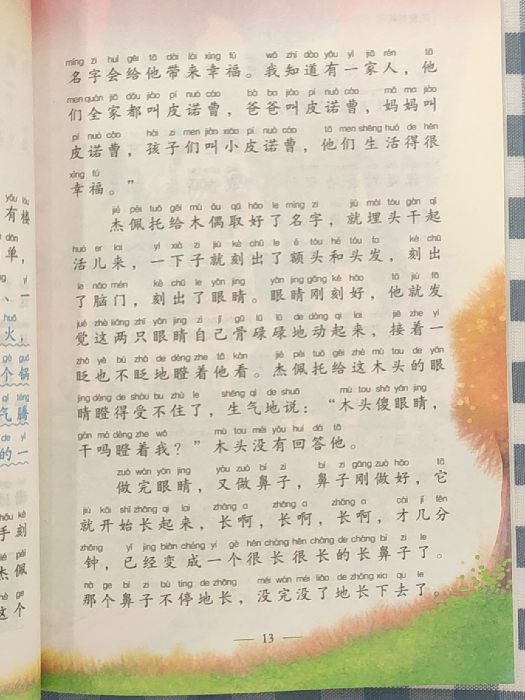 míng zi huì gěi tā dài lái xìng fú wǒ zhī dào yǒu yì jiā rén tā
名字会给他带来幸福。我知道有一家人，他
men quán jiā dōu jiào pí nuò cáo bà ba jiào pí nuò cáo mā ma jiào
们全家都叫皮诺曹，爸爸叫皮诺曹，妈妈叫
pí nuò cáo hái zi men jiào xiǎo pí nuò cáo tā men shēng huó de hěn
皮诺曹，孩子们叫小皮诺曹，他们生活得很
xìng fú
幸福。”
jié pèi tuō gěi mù ǒu qǔ hǎo le míng zi jiù mái tóu gàn qǐ
杰佩托给木偶取好了名字，就埋头干起
huó er lái yí xià zi jiù kè chū le é tóu hé tóu fa kè chū
活儿来，一下子就刻出了额头和头发，刻出
le nǎo mén kè chū le yǎn jing yǎn jing gāng kè hǎo tā jiù fā
了脑门，刻出了眼睛。眼睛刚刻好，他就发
jué zhè liǎng zhī yǎn jing zì jǐ gū lū lū de dòng qǐ lái jiē zhe yì
觉这两只眼睛自己骨碌碌地动起来，接着一
zhǎ yě bù zhǎ de dèng zhe tā kàn jié pèi tuō gěi zhè mù tou de yǎn
眨也不眨地瞪着他看。杰佩托给这木头的眼
jing dèng de shòu bu zhù le shēng qì de shuō mù tou shǎ yǎn jing
睛瞪得受不住了，生气地说：“木头傻眼睛，
gàn má dèng zhe wǒ mù tou méi yǒu huí dá tā
干吗瞪着我？”木头没有回答他。
zuò wán yǎn jing yòu zuò bí zi bí zi gāng zuò hǎo tā
做完眼睛，又做鼻子，鼻子刚做好，它
jiù kāi shǐ zhǎng qǐ lái zhǎng a zhǎng a zhǎng a cái jǐ fēn
就开始长起来，长啊，长啊，长啊，才几分
zhōng yǐ jīng biàn chéng yí gè hěn cháng hěn cháng de cháng bí zi le
钟，已经变成一个很长很长的长鼻子了。
nà ge bí zi bù tíng de zhǎng méi wán méi liǎo de zhǎng xià qu le
那个鼻子不停地长，没完没了地长下去了。
13